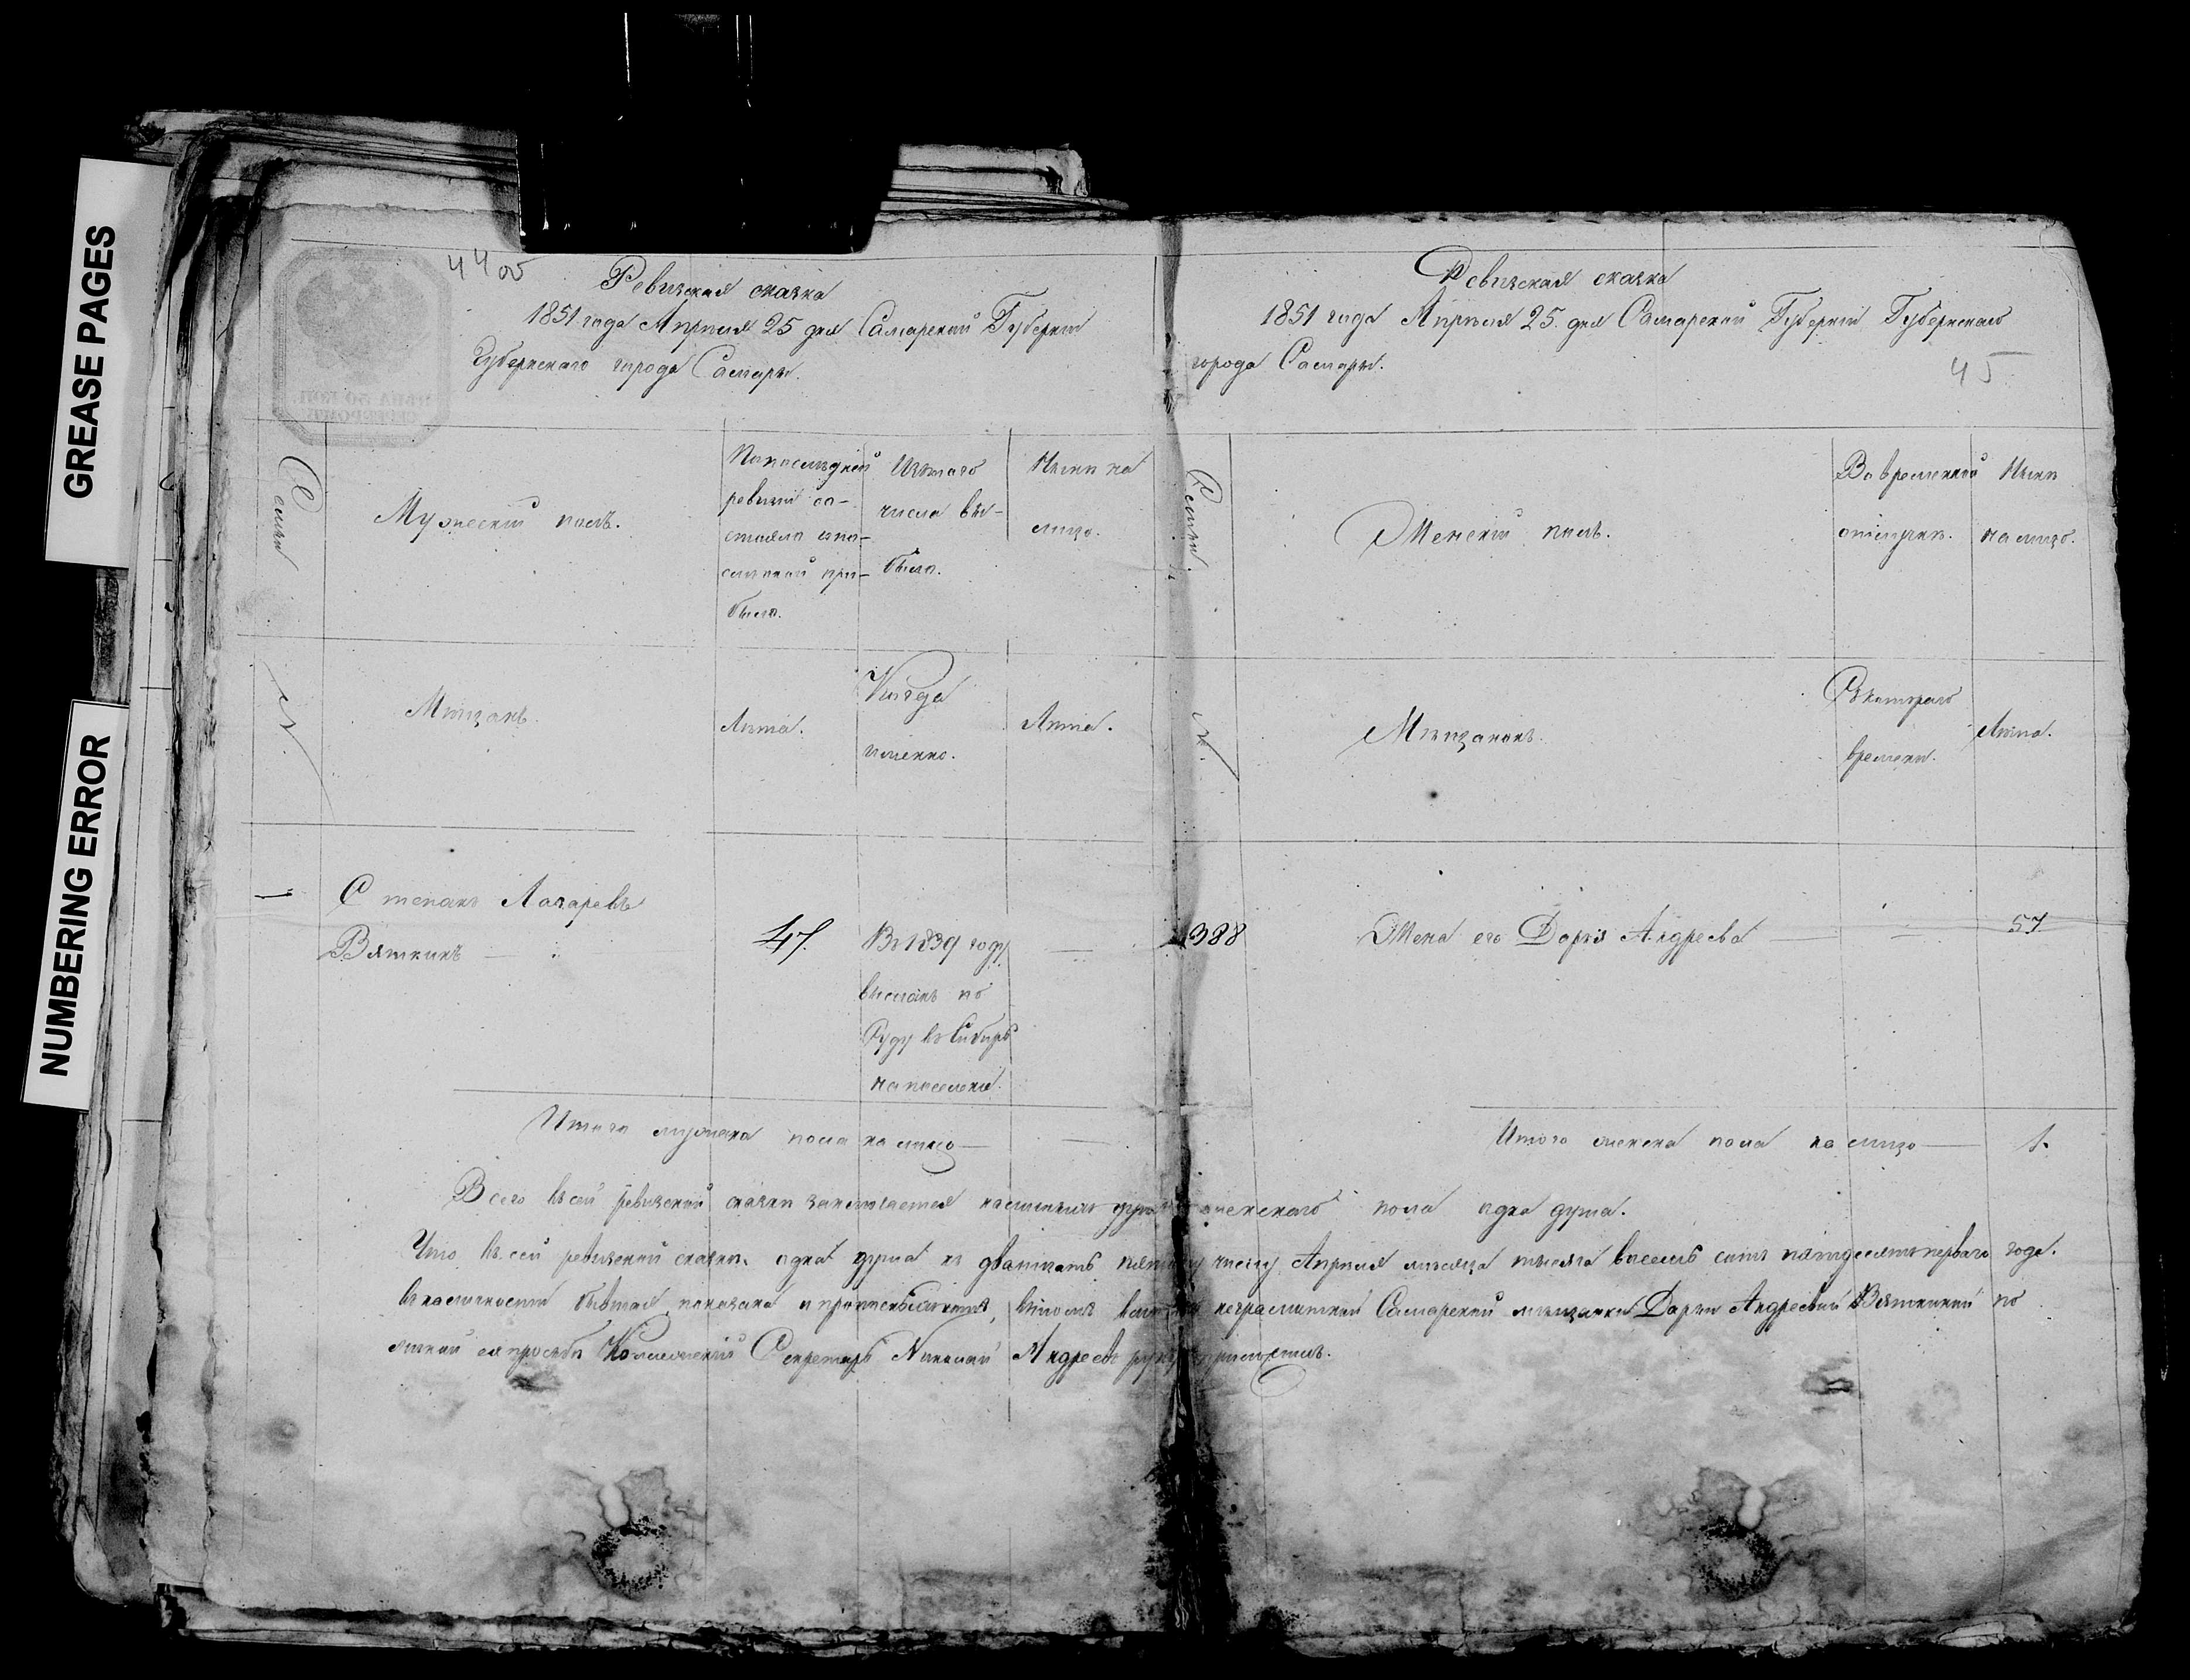 GREASE PAGES
NUMBERING ERROR
44 об
Ревизская сказка
1851 года Апреля 25 дня Самарской Губернии
Губернского города Самары.
Семьи
Мужеский полъ.
По последней
ревизии со-
стояло и по-
сле оной при-
было.
Изъ того
числа вы-
было.
Ныне на
лицо.
№
Мещанъ.
Лета.
Когда
именно.
Лета.
1
Степанъ Лазаревъ
Вяткинъ
47.
Въ 1839 году
высланъ по
Суду въ Сибирь
на поселение.
Итого мужеска пола на лицо —
Ревизская сказка
1851 года Апреля 25. дня Самарской Губернии Губернского
города Самары.
45
Семьи.
Женский полъ.
Во временной
отлучке.
Ныне
на лицо.
№.
Мещанокъ.
Съ котораго
времени.
Лета.
388
Жена его Дарья Андреева
57
Итого женска пола на лицо — 1.
Всего въ сей ревизской сказке заключается наличныхъ душъ женскаго пола одна душа.
Что въ сей ревизской сказке одна душа къ двадцать пятому числу Апреля месяца тысяча восемь сотъ пятьдесятъ перваго года.
въ наличности бывшая показана и прописныхъ нетъ, въ томъ вместо неграмотной Самарской мещанки Дарьи Андреевой Вяткиной по
личной ея просьбе Коллежский Секретарь Николай Андреевъ руку приложилъ.